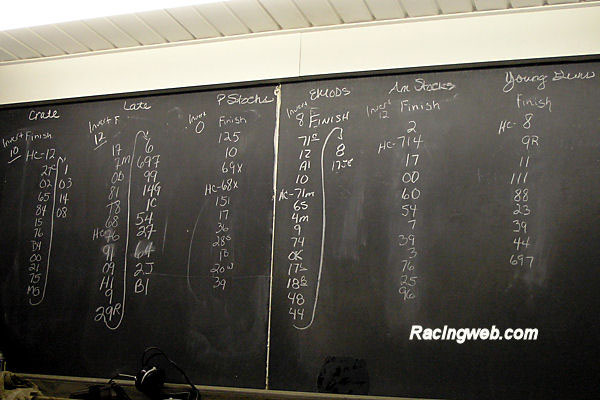 Crate
Invert Finish
10
HC-12
21c 1
02 03
65 14
84 08
15
76
B4
00
21
75
M5
Late
Invert F
12
17
7m
0b
81
T8
68
HC-76
91
09
H1
9
29R
6
697
99
14G
1C
54
27
64
2J
B1
P Stocks
Invert Finish
0
125
10
69x
HC-68x
151
17
36
28s
1B
20w
39
EMODS
Invert F
8 FINISH
71c
12
A1
10
HC-71m
65
4m
9
74
OK
17
18
48
44
8
17JC
Am Stocks
Invert Finish
12
2
HC-714
17
00
60
54
7
39
3
76
25
96
Young Guns
Finish
HC-8
9R
11
111
88
23
39
44
697
Racingweb.com